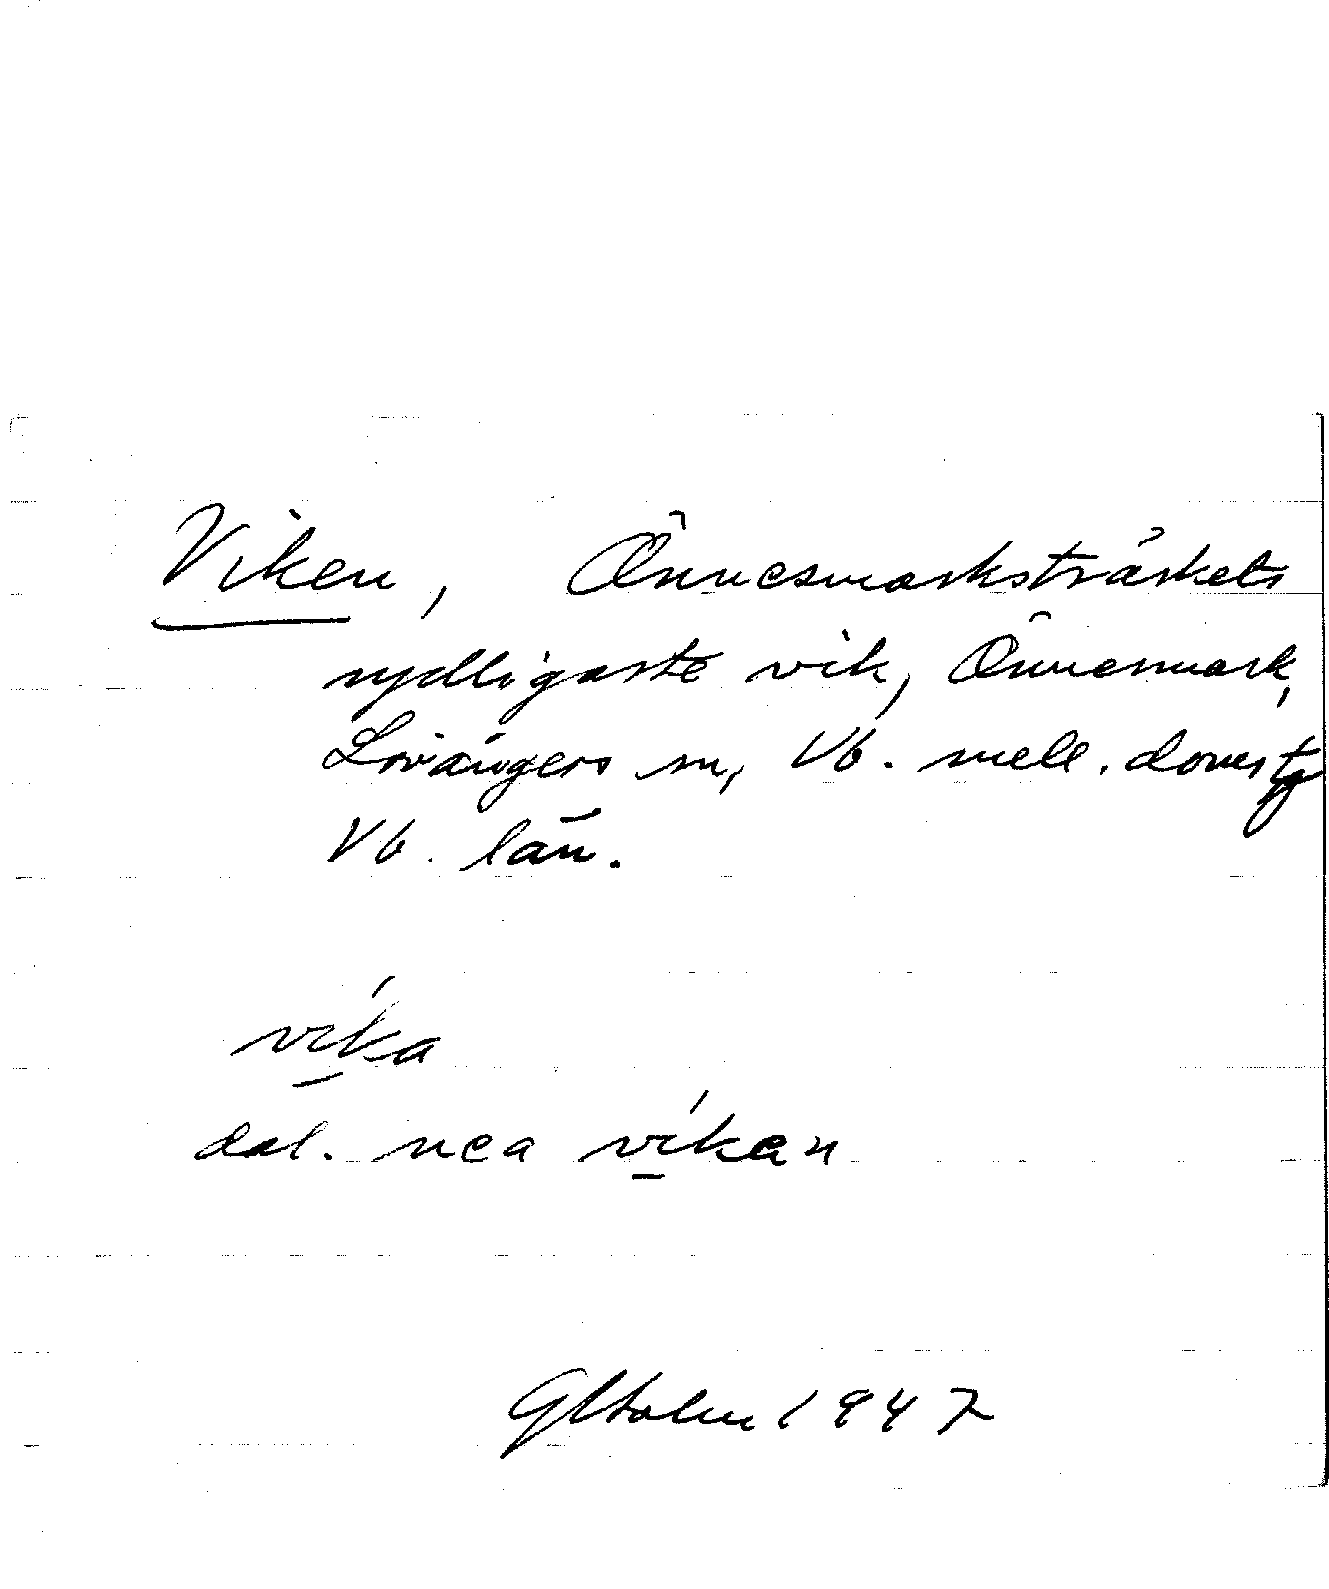 Viken, Önnesmarksträskets
sydligaste vik, Önnesmark,
Lövångers sn, Vb. mell. domsg
Vb. län.
víka
dal. nea víkan
G Holm 1947